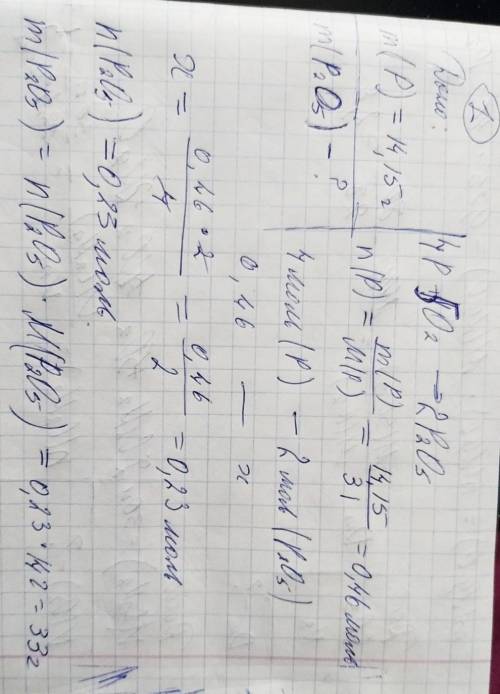 1
Дано:
m(P) = 14,15 г
m(P₂O₅) - ?
4P + 5O₂ → 2P₂O₅
n(P) = m(P)/M(P) = 14,15/31 = 0,46 моль
4 моль (P) – 2 моль (P₂O₅)
0,46 — x
x = 0,46 · 2/4 = 0,46/2 = 0,23 моль
n(P₂O₅) = 0,23 моль.
m(P₂O₅) = n(P₂O₅) · M(P₂O₅) = 0,23 · 142 = 33 г